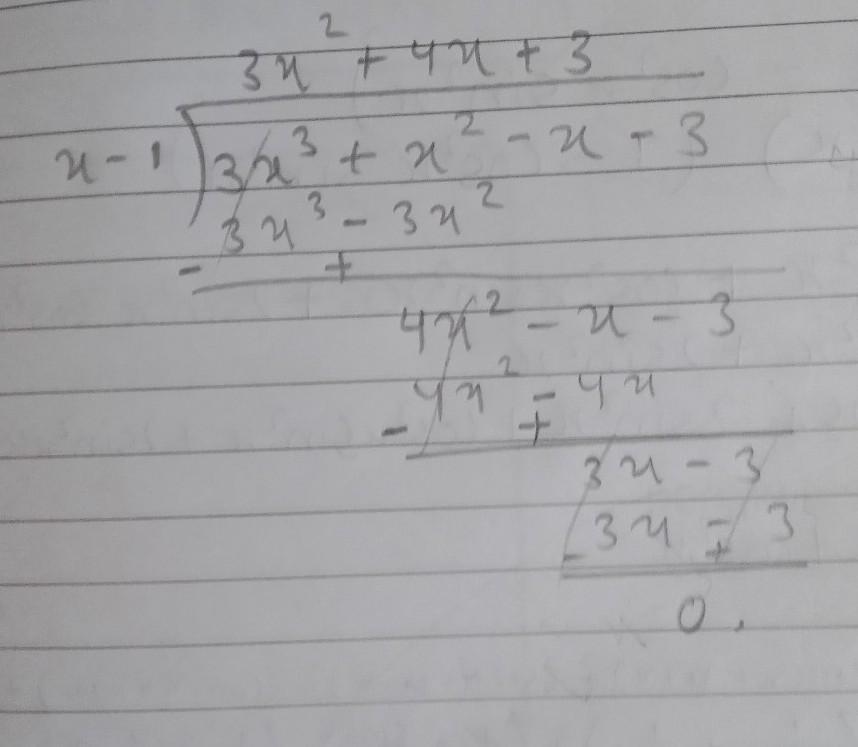 3x² + 4x + 3
x - 1 ) 3x³ + x² - x - 3
3x³ - 3x²
- +
4x² - x - 3
4x² - 4x
- +
3x - 3
3x - 3
- +
0.